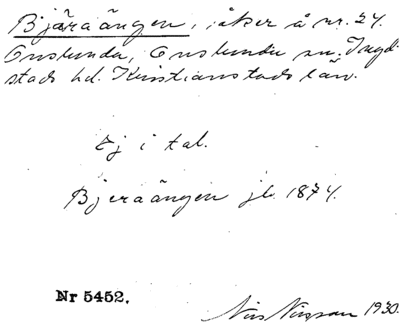 Bjäraängen, åker å nr. 24.
Onslunda, Onslunda sn. Ingel-
stads hd. Kristianstads län.
Ej i tal.
Bjeraängen jb. 1874.
Nr 5452.
Nils Nilsson 1930.